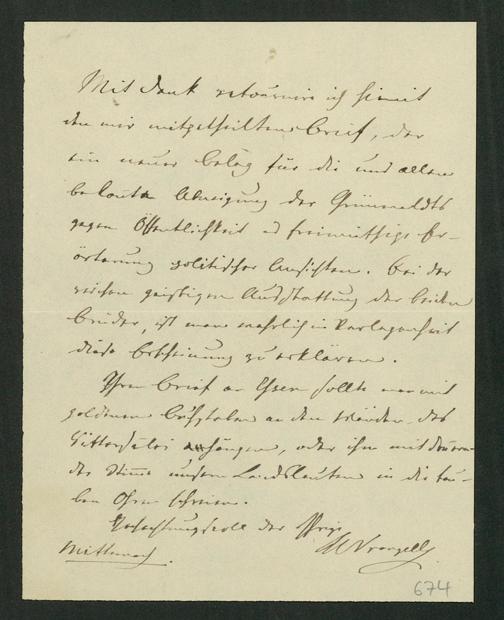 Mit Dank retournire ich hiemit
den mir mitgetheilten Brief, der
ein neuer Beleg für die uns allen
bekannte Abneigung der Grünewaldts
gegen Öffentlichkeit u freimüthige Er-
örterung politischer Ansichten. Bei der
reichen geistigen Ausstattung der beiden
Brüder, ist man wahrlich in Verlegenheit
diese Erscheinung zu erklären.
Ihren Brief an Essen sollte man mit
goldenen Buchstaben an den Wänden des
Rittersaales anhängen, oder ihn mit donnern-
der Stimme unsern Landsleuten in die tau-
ben Ohren schreien.
Hochachtungsvoll der Ihrige
Wrangell
Mittwoch.
674